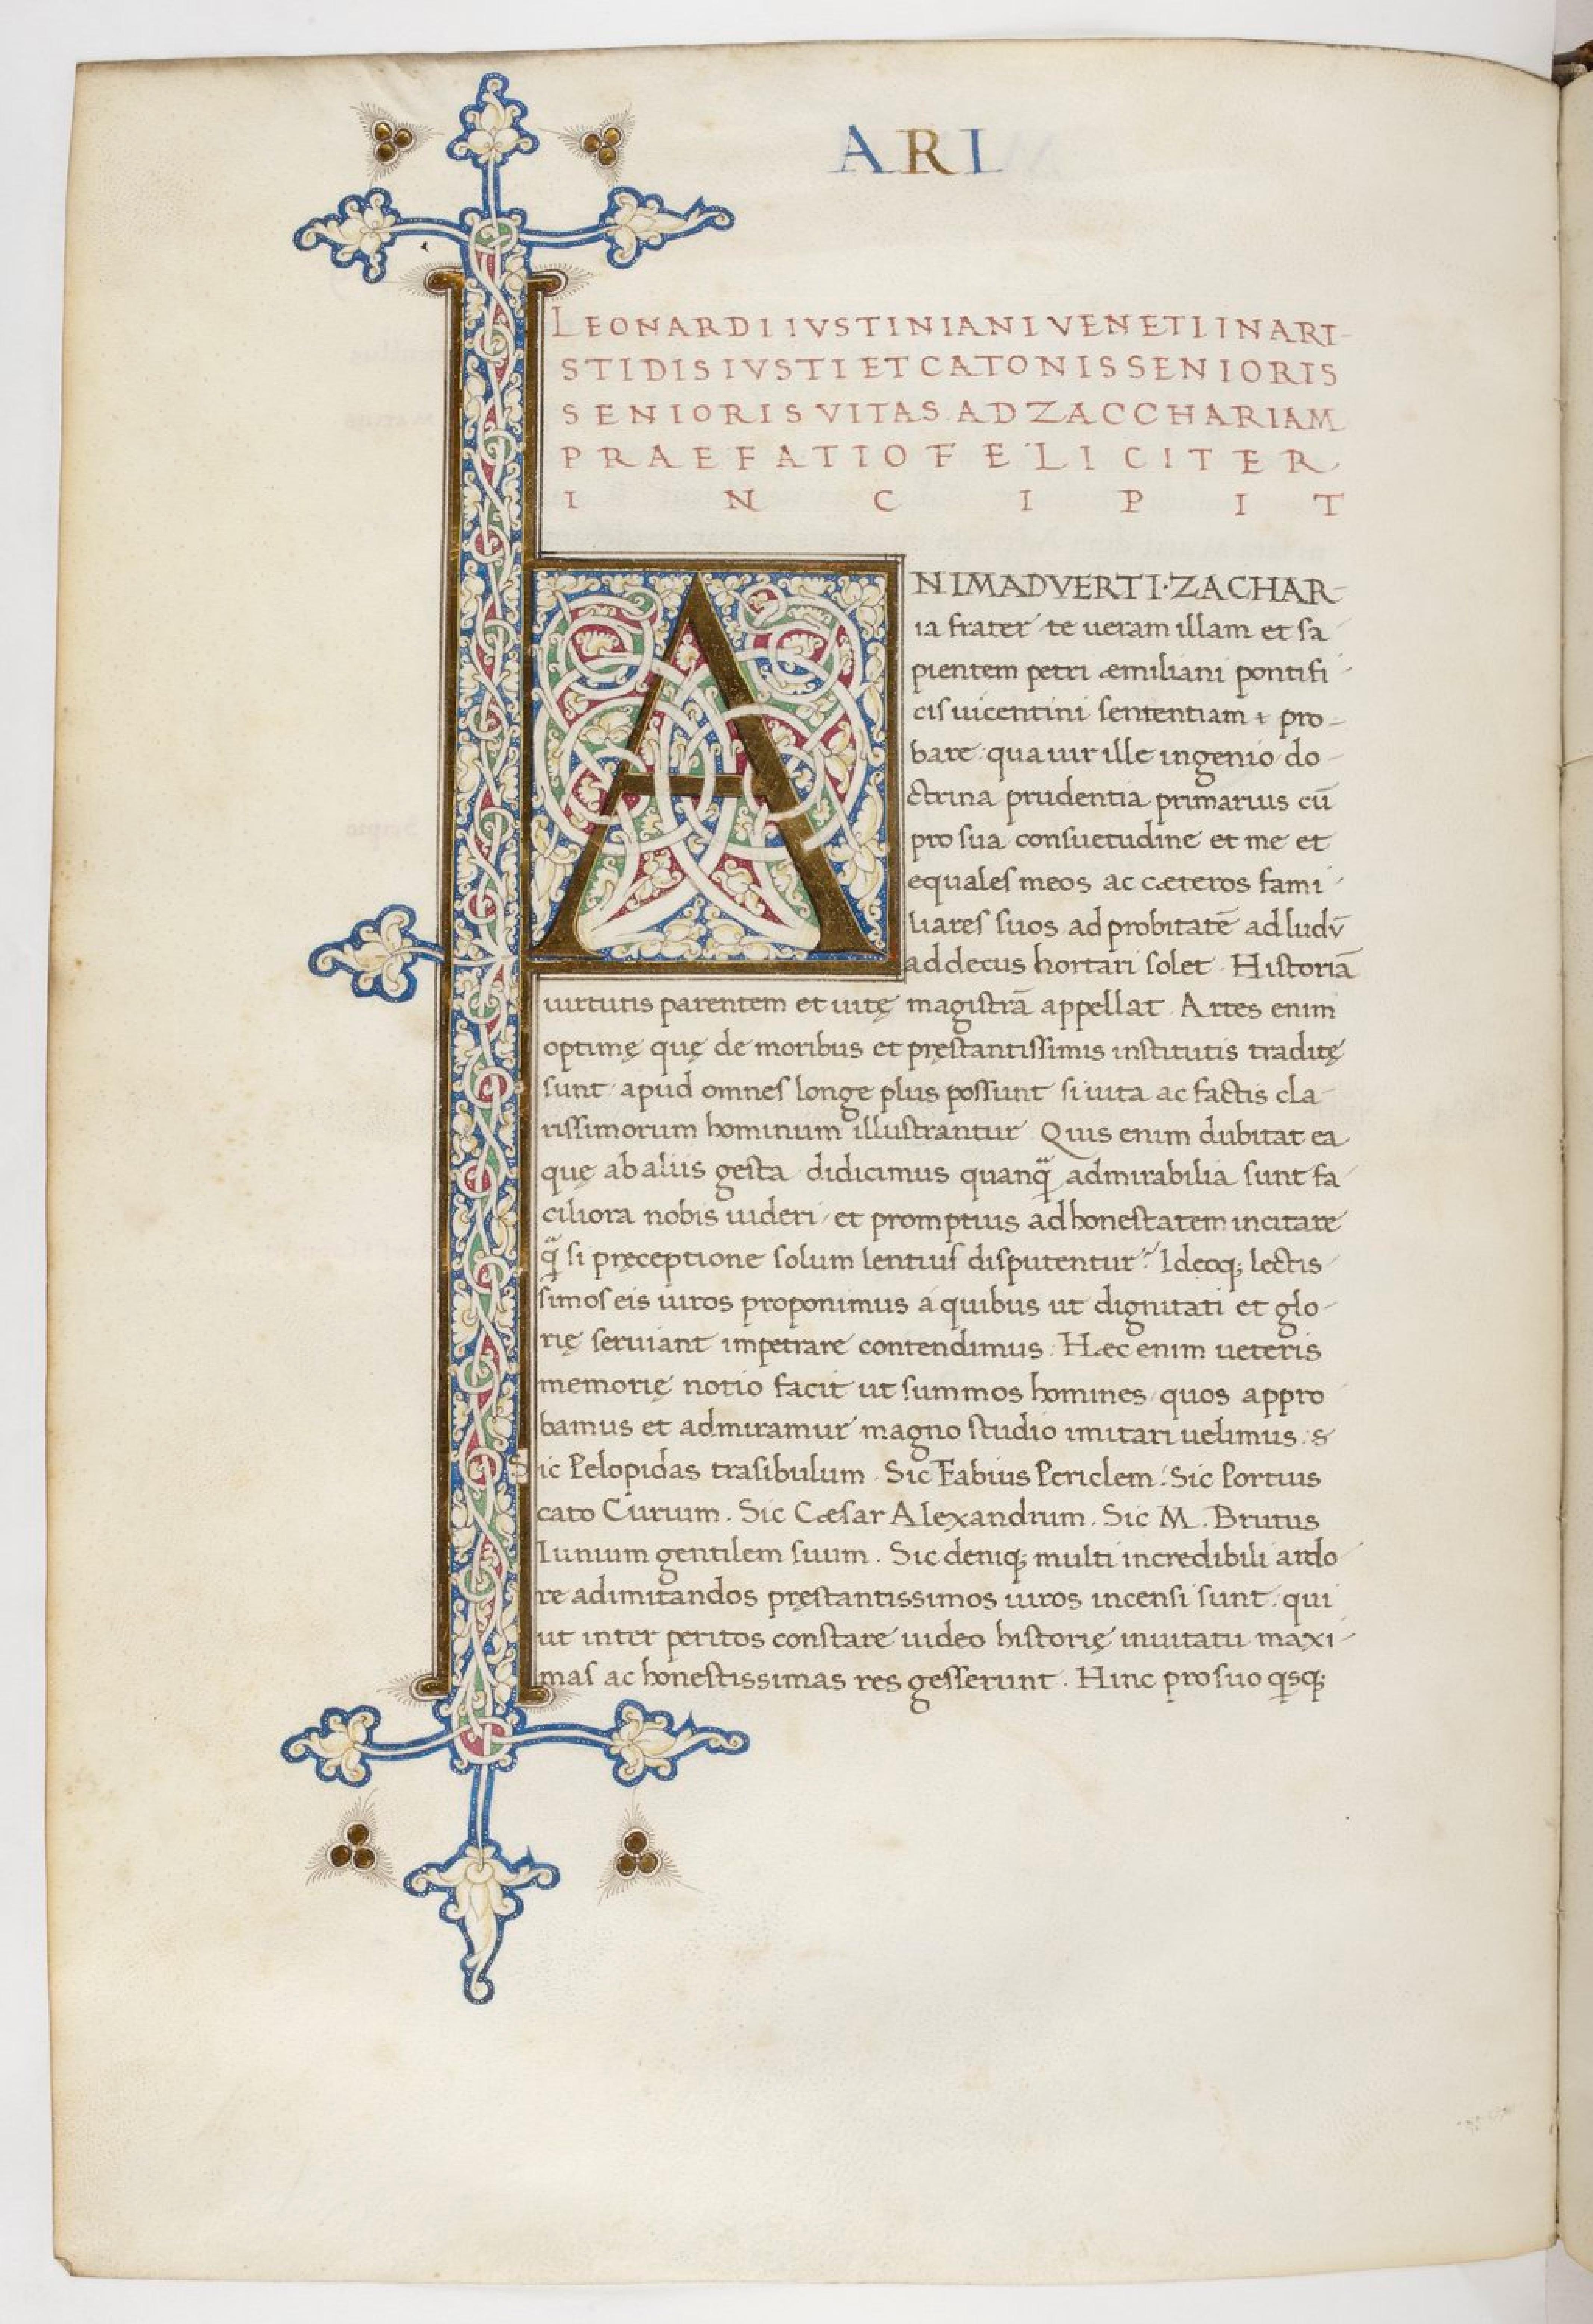 ARI
LEONARDI IVSTINIANI VENETI IN ARI-
STIDIS IVSTI ET CATONIS SENIORIS
SENIORIS VITAS AD ZACCHARIAM
PRAEFATIO FELICITER
INCIPIT
ANIMADVERTI·ZACHAR-
ia frater te ueram illam et sa
pientem petri æmiliani pontifi
cis uicentini sententiam pro-
bare qua uir ille ingenio do
ctrina prudentia primarius cū
pro sua consuetudine et me et
equales meos ac cæteros fami
liares suos ad probitatē ad ludv̄
ad decus hortari solet. Historiā
uirtutis parentem et uitę magistrā appellat. Artes enim
optimę quę de moribus et pręstantissimis institutis traditę
sunt apud omnes longe plus possunt si uita ac factis cla
rissimorum hominum illustrantur Quis enim dubitat ea
quę ab aliis gesta didicimus quanq̄ admirabilia sunt fa
ciliora nobis uideri, et promptius ad honestatem incitare
q̄ si pręceptione solum lentius disputentur? Ideoq; lectis
simos eis uiros proponimus a quibus ut dignitati et glo-
rię seruiant impetrare contendimus. Hæc enim ueteris
memorię notio facit ut summos homines quos appro
bamus et admiramur magno studio imitari uelimus. s
Sic Pelopidas trasibulum. Sic Fabius Periclem. Sic Portius
cato Curium. Sic Cæsar Alexandrum. Sic M. Brutus
Iunium gentilem suum. Sic deniq; multi incredibili ardo
re ad imitandos pręstantissimos uiros incensi sunt. qui
ut inter peritos constare uideo historię inuitatu maxi-
mas ac honestissimas res gesserunt. Hinc pro suo qsq;